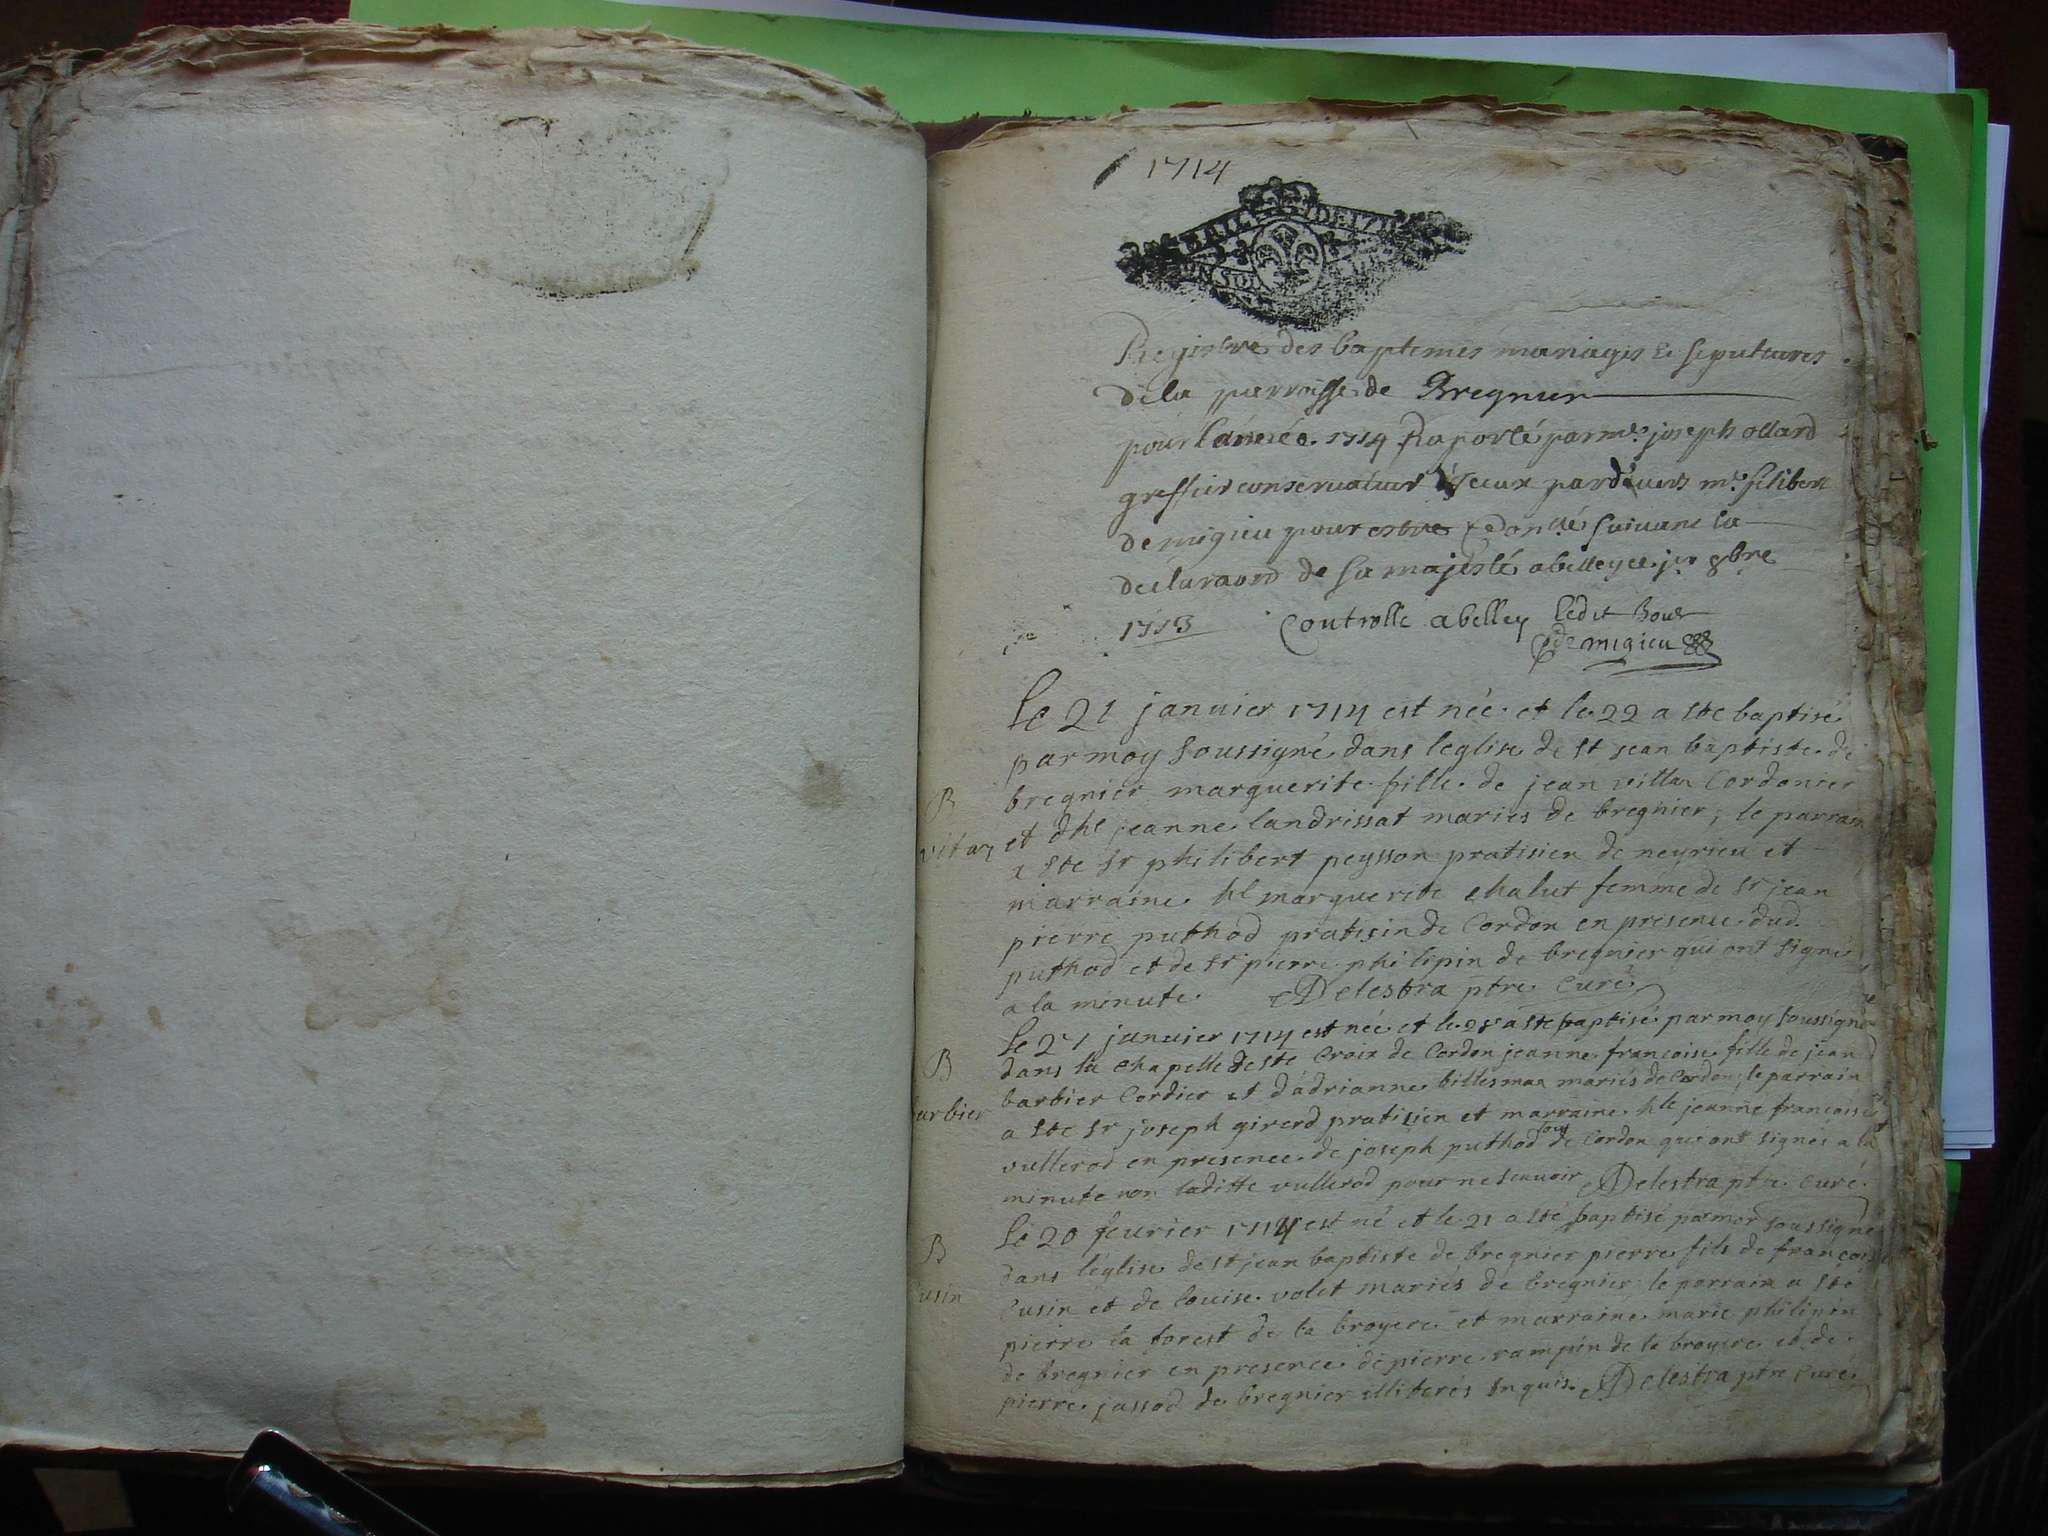 1714
GENERALITE DE DIJON
SOL
Registre des baptemes mariages & sepultures
de la parroisse de Bregnier
pour l'année 1714 Raporté par me joseph ollard
greffier conservateur d'iceux pardevers me filibert
de migieu pour estre suivant la
declaraon de sa majesté a belley ce jer 8bre
1713 Controllé a belley ledit Jour
de migieu
Le 21 janvier 1714 est née et le 22 a sté baptisé
par moy soussigné dans leglise de st jean baptiste de
B bregnier marguerite fille de jean villar Cordonier
vitar et d hle jeanne landrissat mariés de bregnier, le parrain
a sté sr philibert peysson pratisien de neyrieu et
marraine hle marguerite chalut femme de sr jean
pierre puthod pratisin de Cordon en presence dud.
puthod et de sr pierre philipin de bregnier qui ont signé
a la minute. Delestra ptre Curé
Le 27 janvier 1714 est née et le 28 a sté baptisé par moy soussigné
B dans la chapelle de ste Croix de Cordon jeanne francoise fille de jean
barbier barbier Cordier et d'adrianne billemaz mariés de Cordon, le parrain
a sté sr joseph girerd pratisien et marraine hle jeanne francoise
vullerod en presence de joseph puthod tous de Cordon qui ont signés a la
minute non laditte vullerod pour ne scavoir Delestra ptre Curé.
Le 20 fevrier 1714 est né et le 21 a sté baptisé par moy soussigné
B dans l'église de st jean baptiste de bregnier pierre fils de francois
Cusin Cusin et de Louise volet mariés de bregnier le parrain a sté
pierre la forest de la broyere et marraine marie philipin
de bregnier en presence de pierre rampin de la broyere et de
pierre jassod de bregnier illiterés Enquis. Delestra ptre Curé